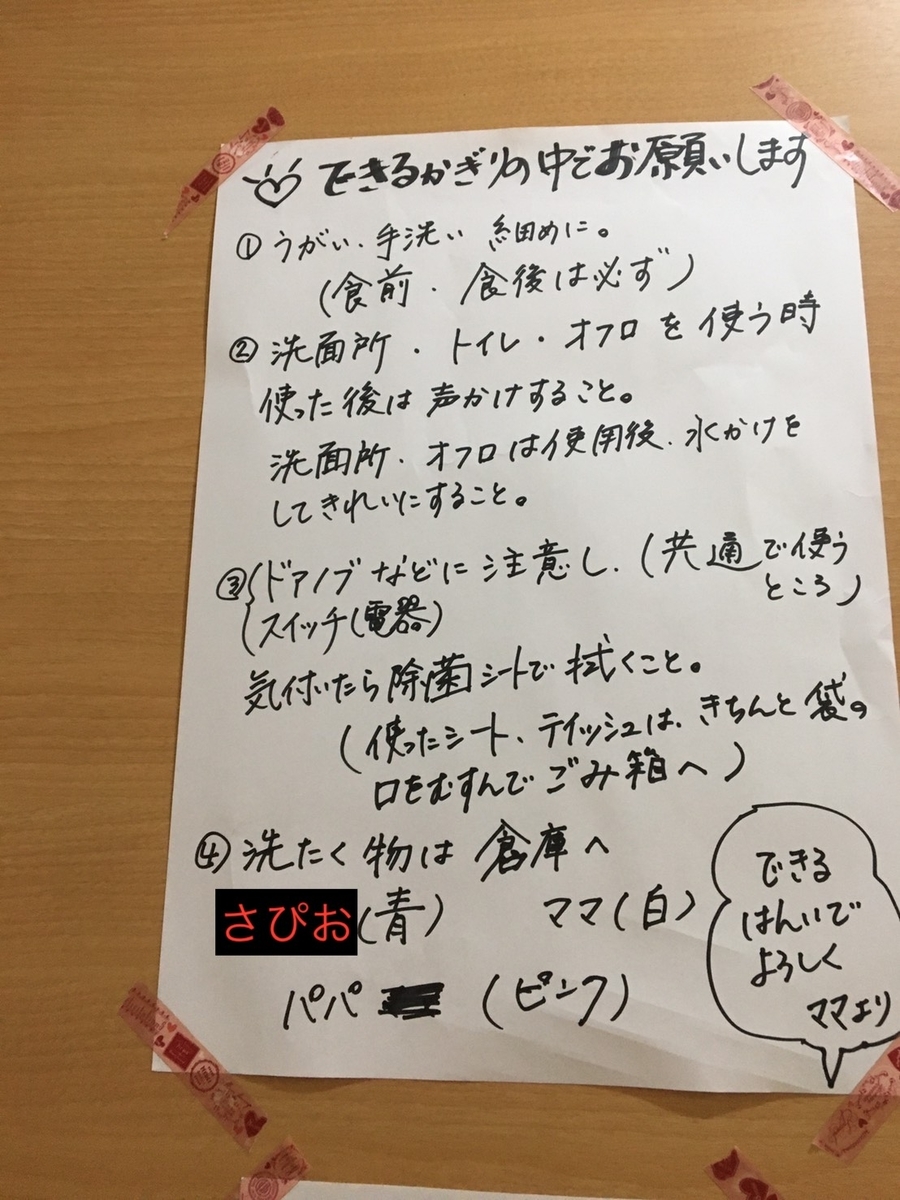 できるかぎりの中でお願いします
① うがい、手洗い 細めに。
(食前・食後は必ず)
② 洗面所・トイレ・オフロを使う時
使った後は声かけすること。
洗面所・オフロは使用後、水かけを
してきれいにすること。
③ ドアノブなどに注意し、(共通で使う
ところ)
スイッチ(電器)
気付いたら除菌シートで拭くこと。
(使ったシート、テイッシュは、きちんと袋の
口をむすんでごみ箱へ)
④ 洗たく物は倉庫へ
さぴお(青) ママ(白)
パパ (ピンク)
できる
はんいで
よろしく
ママより